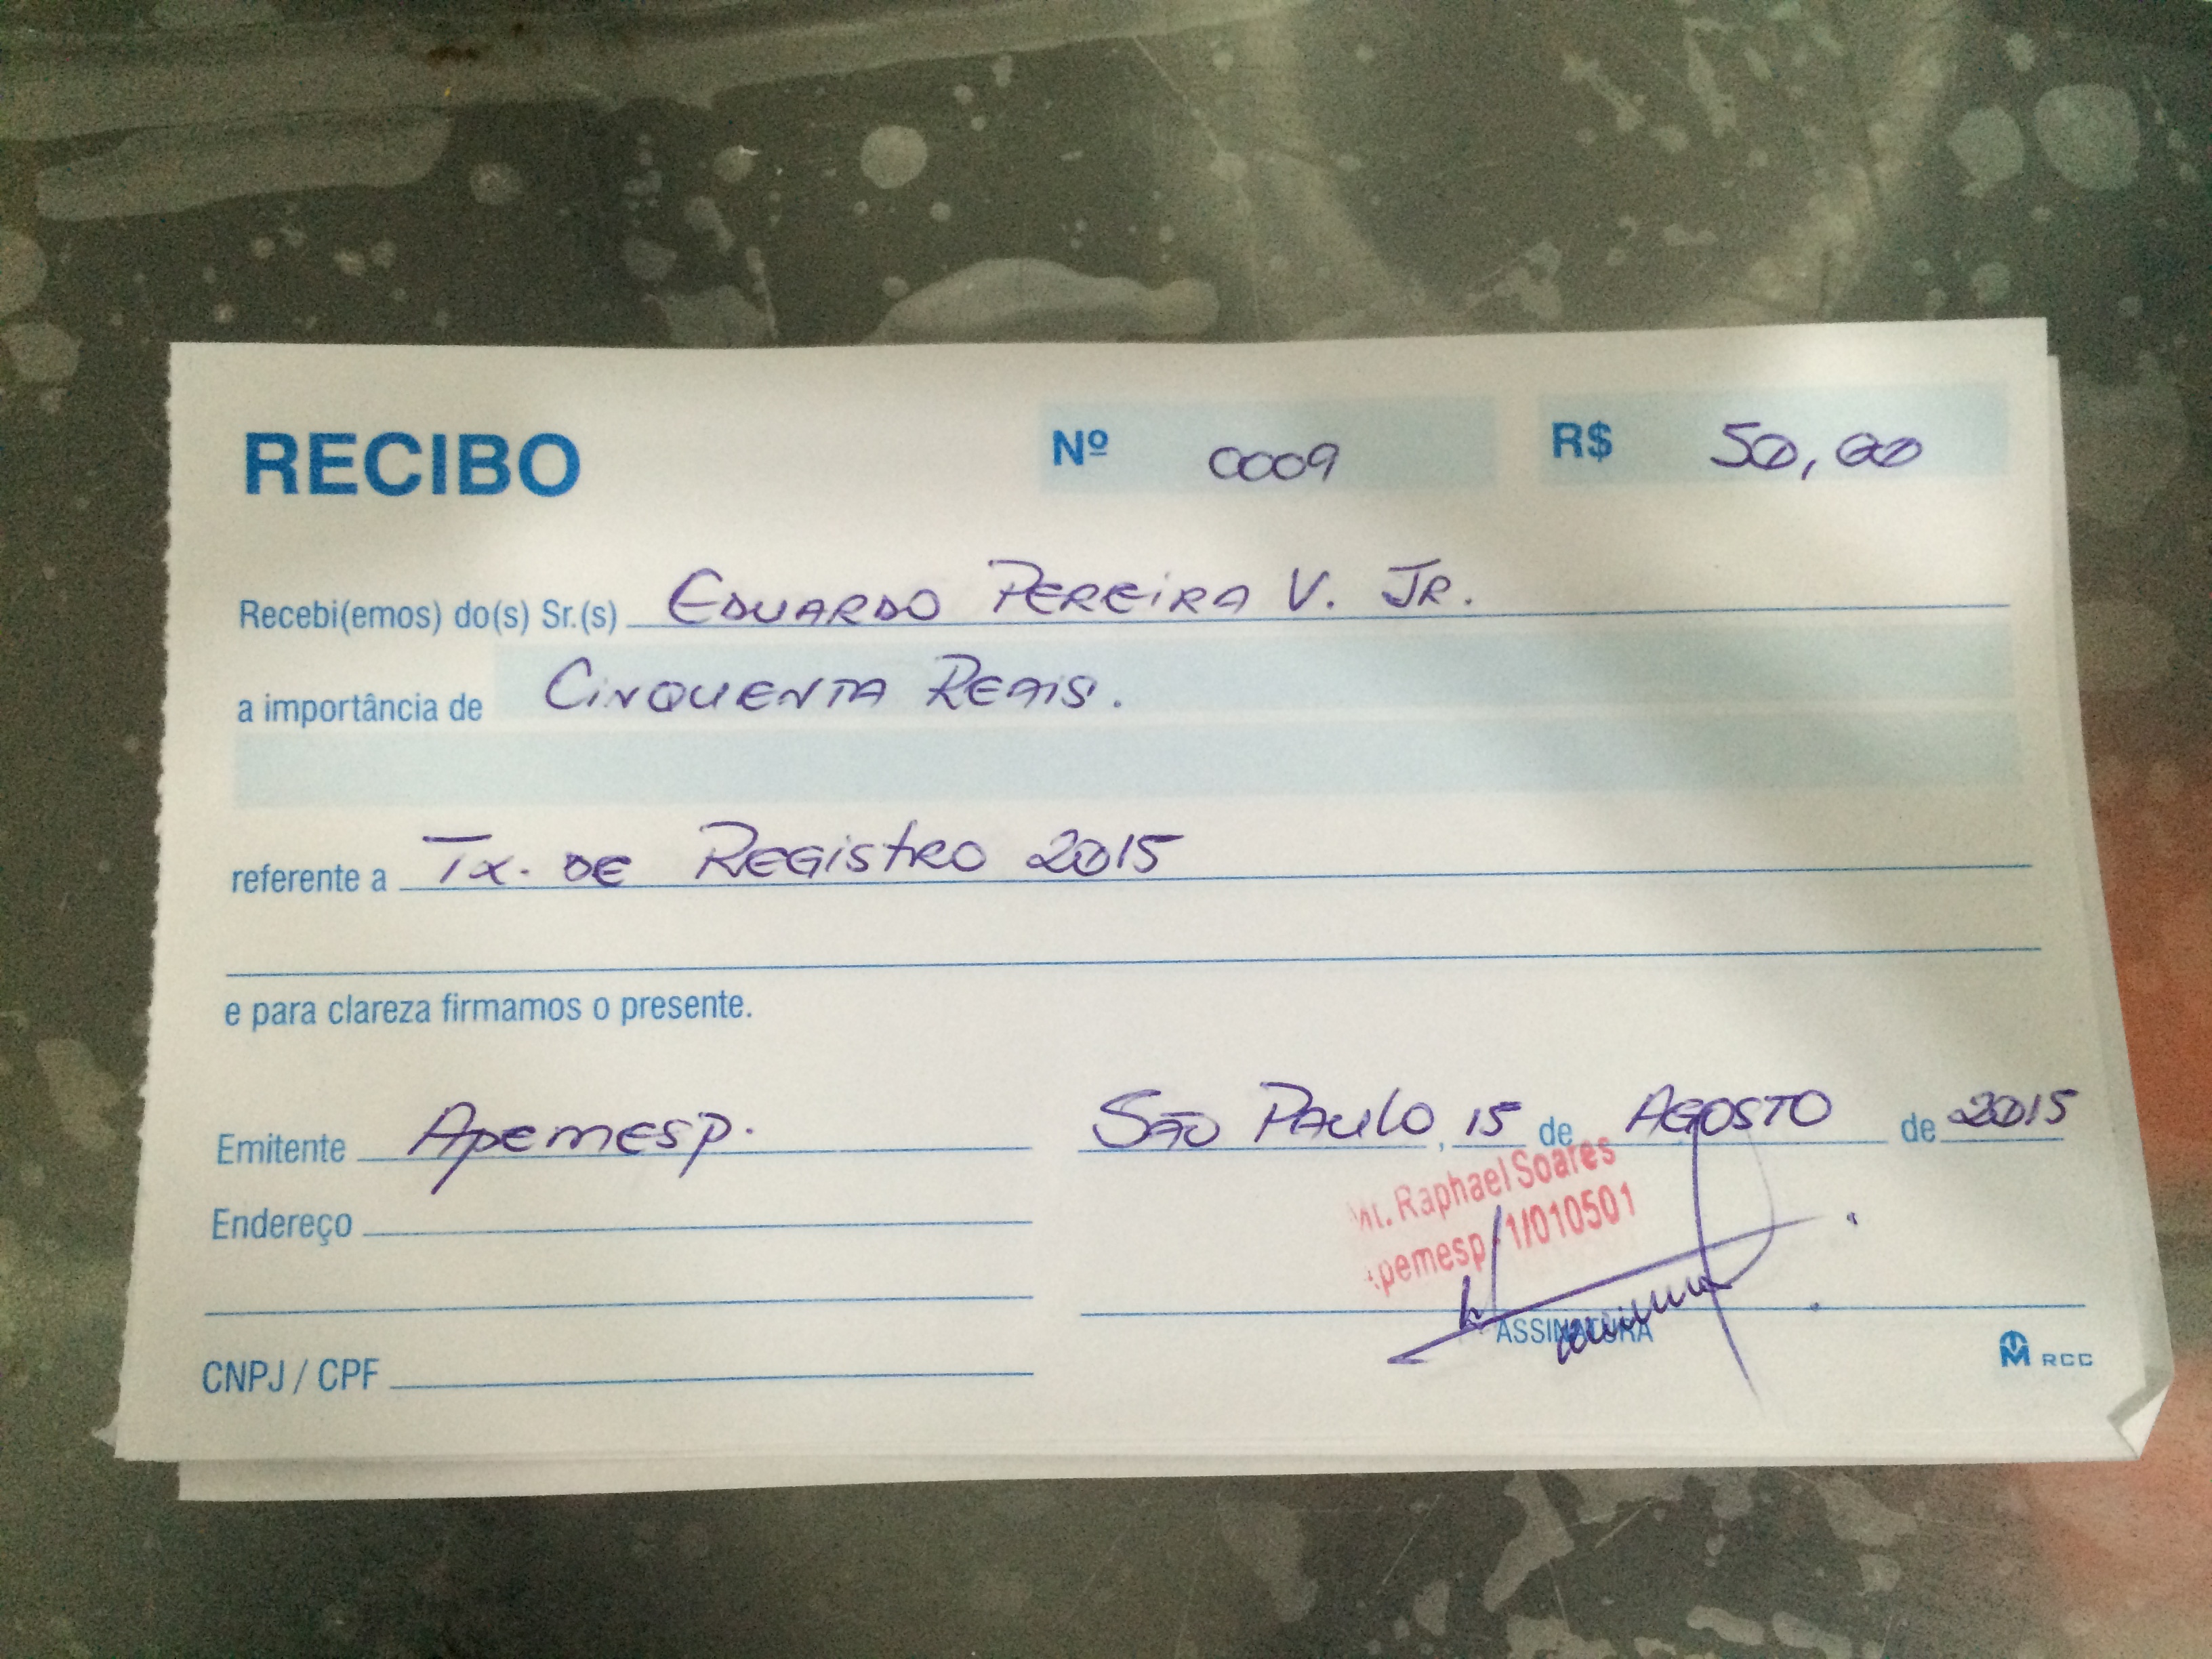 RECIBO Nº 0009 R$ 50,00
Recebi(emos) do(s) Sr.(s) EDUARDO PEREIRA V. JR.
a importância de CINQUENTA REAIS.
referente a Tx. DE REGISTRO 2015
e para clareza firmamos o presente.
Emitente Apemesp.
SÃO PAULO, 15 de AGOSTO de 2015
Raphael Soares
pemesp 1/010501
Endereço
ASSINATURA
CNPJ / CPF
RCC